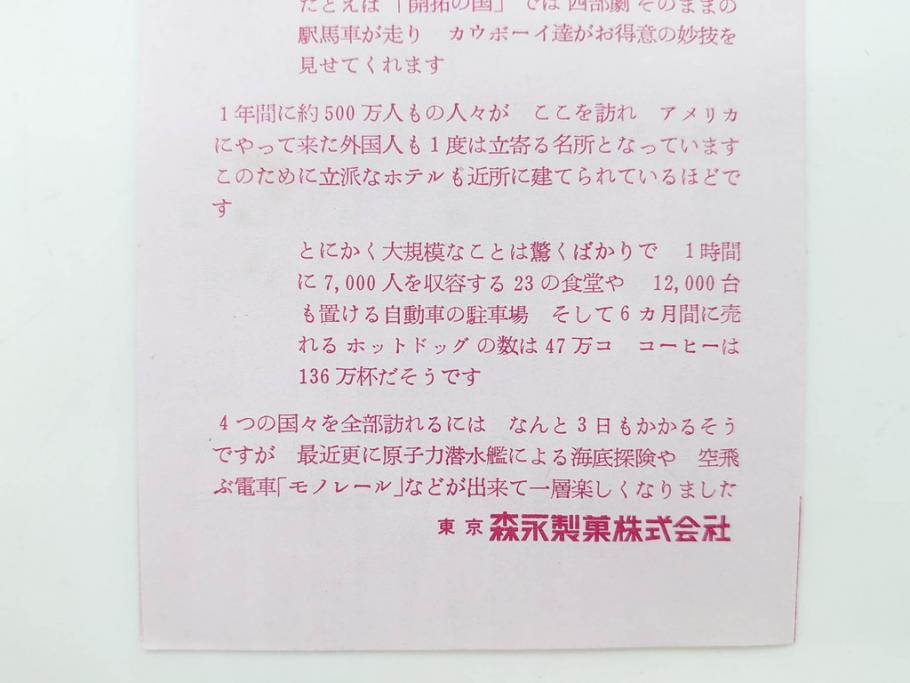 たとえば 「開拓の国」 では 西部劇 そのままの
駅馬車が走り カウボーイ達がお得意の妙技を
見せてくれます
1年間に約500万人もの人々が ここを訪れ アメリカ
にやって来た外国人も1度は立寄る名所となっています
このために立派なホテルも近所に建てられているほどで
す
とにかく大規模なことは驚くばかりで 1時間
に7,000人を収容する23の食堂や 12,000台
も置ける自動車の駐車場 そして6カ月間に売
れるホットドッグの数は47万コ コーヒーは
136万杯だそうです
4つの国々を全部訪れるには なんと3日もかかるそう
ですが 最近更に原子力潜水艦による海底探険や 空飛
ぶ電車「モノレール」などが出来て一層楽しくなりました
東京 森永製菓株式会社